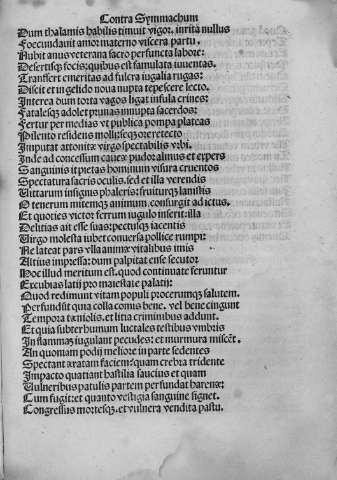 Contra Symmachum
Dum thalamis habilis timuit vigor. irrita nullus
Foecundauit amor materno viscera partu.
Nubit anus veterana sacro perfuncta labore:
Desertisqꝫ focis: quibus est famulata iuuentas.
Transfert emeritas ad fulcra iugalia rugas:
Discit et in gelido noua nupta tepescere lecto.
Interea dum torta vagos ligat infula crines:
Fatalesqꝫ adolet prunas innupta sacerdos:
Fertur per medias vt publica pompa plateas
Pilento residens molli: seqꝫ ore retecto
Imputat attonitæ virgo spectabilis vrbi.
Inde ad concessum caueæ pudor almus et expers
Sanguinis it pietas hominum visura cruentos
Spectatura sacris oculis. sed et illa verendis
Vittarum insignis phaleris: fruiturqꝫ lanistis
O tenerum mitemqꝫ animum. consurgit ad ictus.
Et quoties victor ferrum iugulo inserit: illa
Delitias ait esse suas: pectusqꝫ iacentis
Virgo modesta iubet conuerso pollice rumpi:
Ne lateat pars vlla animæ vitalibus imis
Altius impressa: dum palpitat ense secutor
Hoc illud meritum est. quod continuate feruntur
Excubias latii pro maiestate palatij:
Quod redimunt vitam populi procerumqꝫ salutem.
Perfundūt quia colla comis bene. vel bene cingunt
Tempora tæniolis. et litia crinimbus addunt.
Et quia subter humum luctales testibus vmbris
In flammaꝫ iugulant pecudes: et murmura miscēt.
An quoniam podij meliore in parte sedentes
Spectant æratam faciem: quam crebra tridente
Impacto quatiant hastilia saucius et quam
Vulneribus patulis partem perfundat harenæ:
Cum fugit: et quanto vestigia sanguine signet.
Congressus mortesqꝫ. et vulnera vendita pastu.